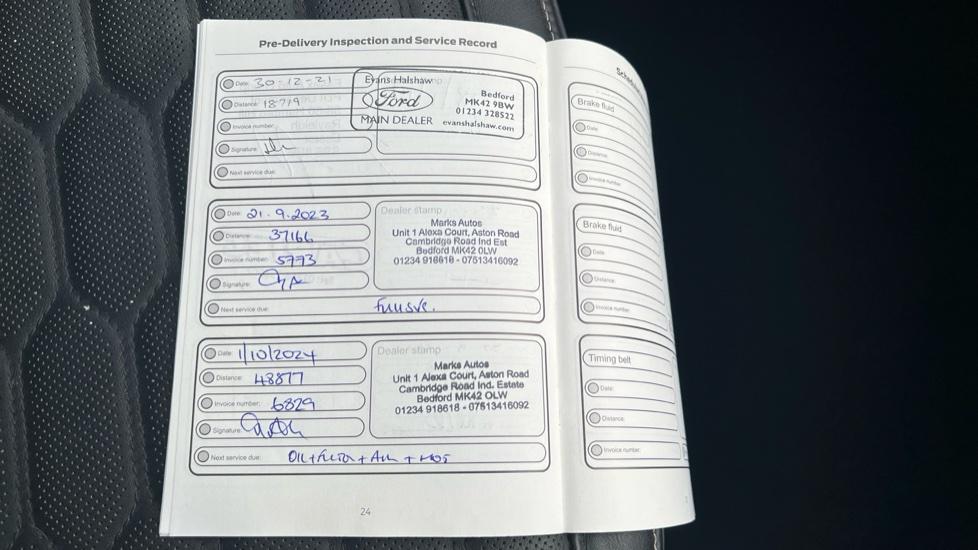 Pre-Delivery Inspection and Service Record
Date: 30-12-21
Distance: 18719
Invoice number:
Signature:
Next service due:
Evans Halshaw
Ford
MAIN DEALER
Bedford
MK42 9BW
01234 328522
evanshalshaw.com
Date: 21.9.2023
Distance: 37166
Invoice number: 5773
Signature:
Next service due:
Dealer stamp
Marks Autos
Unit 1 Alexa Court, Aston Road
Cambridge Road Ind Est
Bedford MK42 OLW
01234 918618 - 07513416092
Date: 1/10/2024
Distance: 48877
Invoice number: 6829
Signature:
Next service due: OIL + + +
Dealer stamp
Marks Autos
Unit 1 Alexa Court, Aston Road
Cambridge Road Ind. Estate
Bedford MK42 OLW
01234 918618 - 07513416092
24
Brake fluid
Date:
Distance:
Invoice number:
Brake fluid
Date:
Distance:
Invoice number:
Timing belt
Date:
Distance:
Invoice number: